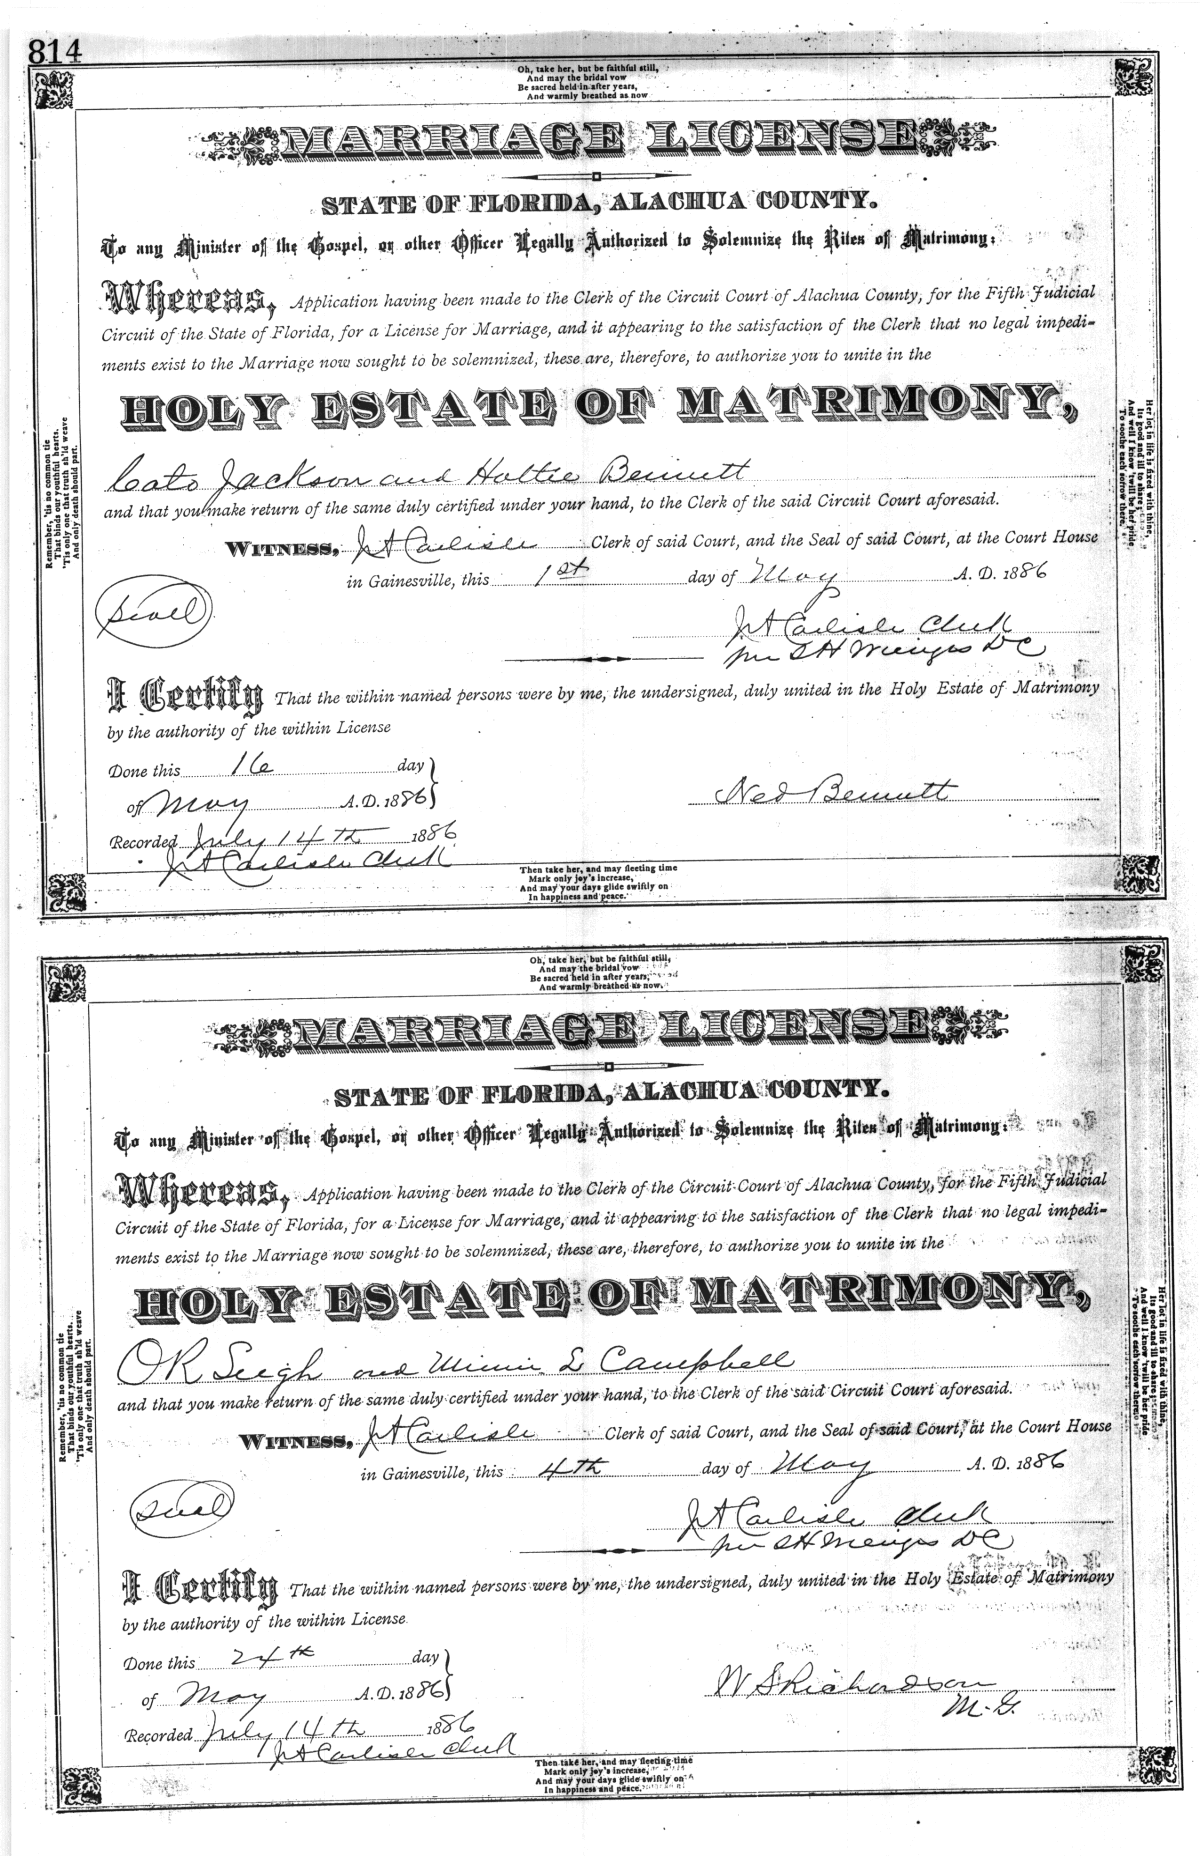 814
Oh, take her, but be faithful still,
And may the bridal vow
Be sacred held in after years,
And warmly breathed as now
MARRIAGE LICENSE
STATE OF FLORIDA, ALACHUA COUNTY.
To any Minister of the Gospel, or other Officer Legally Authorized to Solemnize the Rites of Matrimony:
Whereas, Application having been made to the Clerk of the Circuit Court of Alachua County, for the Fifth Judicial
Circuit of the State of Florida, for a License for Marriage, and it appearing to the satisfaction of the Clerk that no legal impedi-
ments exist to the Marriage now sought to be solemnized, these are, therefore, to authorize you to unite in the
HOLY ESTATE OF MATRIMONY,
Cato Jackson and Hattie Bennett
and that you make return of the same duly certified under your hand, to the Clerk of the said Circuit Court aforesaid.
WITNESS, J A Carlisle Clerk of said Court, and the Seal of said Court, at the Court House
in Gainesville, this 1st day of May A. D. 1886
Seal
J A Carlisle Clerk
per S H Wienges DC
I Certify That the within named persons were by me, the undersigned, duly united in the Holy Estate of Matrimony
by the authority of the within License
Done this 16 day
of May A.D. 1886
Ned Bennett
Recorded July 14th 1886
J A Carlisle Clerk
Remember, 'tis no common tie
That binds our youthful hearts,
'Tis only one that truth sh'ld weave
And only death should part.
Her lot in life is fixed with thine,
Its good and ill to share;
And well I know 'twill be her pride
To soothe each sorrow there.
Then take her, and may fleeting time
Mark only joy's increase,
And may your days glide swiftly on
In happiness and peace.
Oh, take her, but be faithful still,
And may the bridal vow
Be sacred held in after years,
And warmly breathed as now.
MARRIAGE LICENSE
STATE OF FLORIDA, ALACHUA COUNTY.
To any Minister of the Gospel, or other Officer Legally Authorized to Solemnize the Rites of Matrimony:
Whereas, Application having been made to the Clerk of the Circuit Court of Alachua County, for the Fifth Judicial
Circuit of the State of Florida, for a License for Marriage, and it appearing to the satisfaction of the Clerk that no legal impedi-
ments exist to the Marriage now sought to be solemnized, these are, therefore, to authorize you to unite in the
HOLY ESTATE OF MATRIMONY,
O R and Minnie L Campbell
and that you make return of the same duly certified under your hand, to the Clerk of the said Circuit Court aforesaid.
WITNESS, J A Carlisle Clerk of said Court, and the Seal of said Court, at the Court House
in Gainesville, this 4th day of May A. D. 1886
Seal
J A Carlisle Clerk
per S H Wienges DC
I Certify That the within named persons were by me, the undersigned, duly united in the Holy Estate of Matrimony
by the authority of the within License
Done this 24th day
of May A.D. 1886
W S Richardson
M.G.
Recorded July 14th 1886
J A Carlisle Clerk
Remember, 'tis no common tie
That binds our youthful hearts,
'Tis only one that truth sh'ld weave
And only death should part.
Her lot in life is fixed with thine,
Its good and ill to share;
And well I know 'twill be her pride
To soothe each sorrow there.
Then take her, and may fleeting time
Mark only joy's increase,
And may your days glide swiftly on
In happiness and peace.